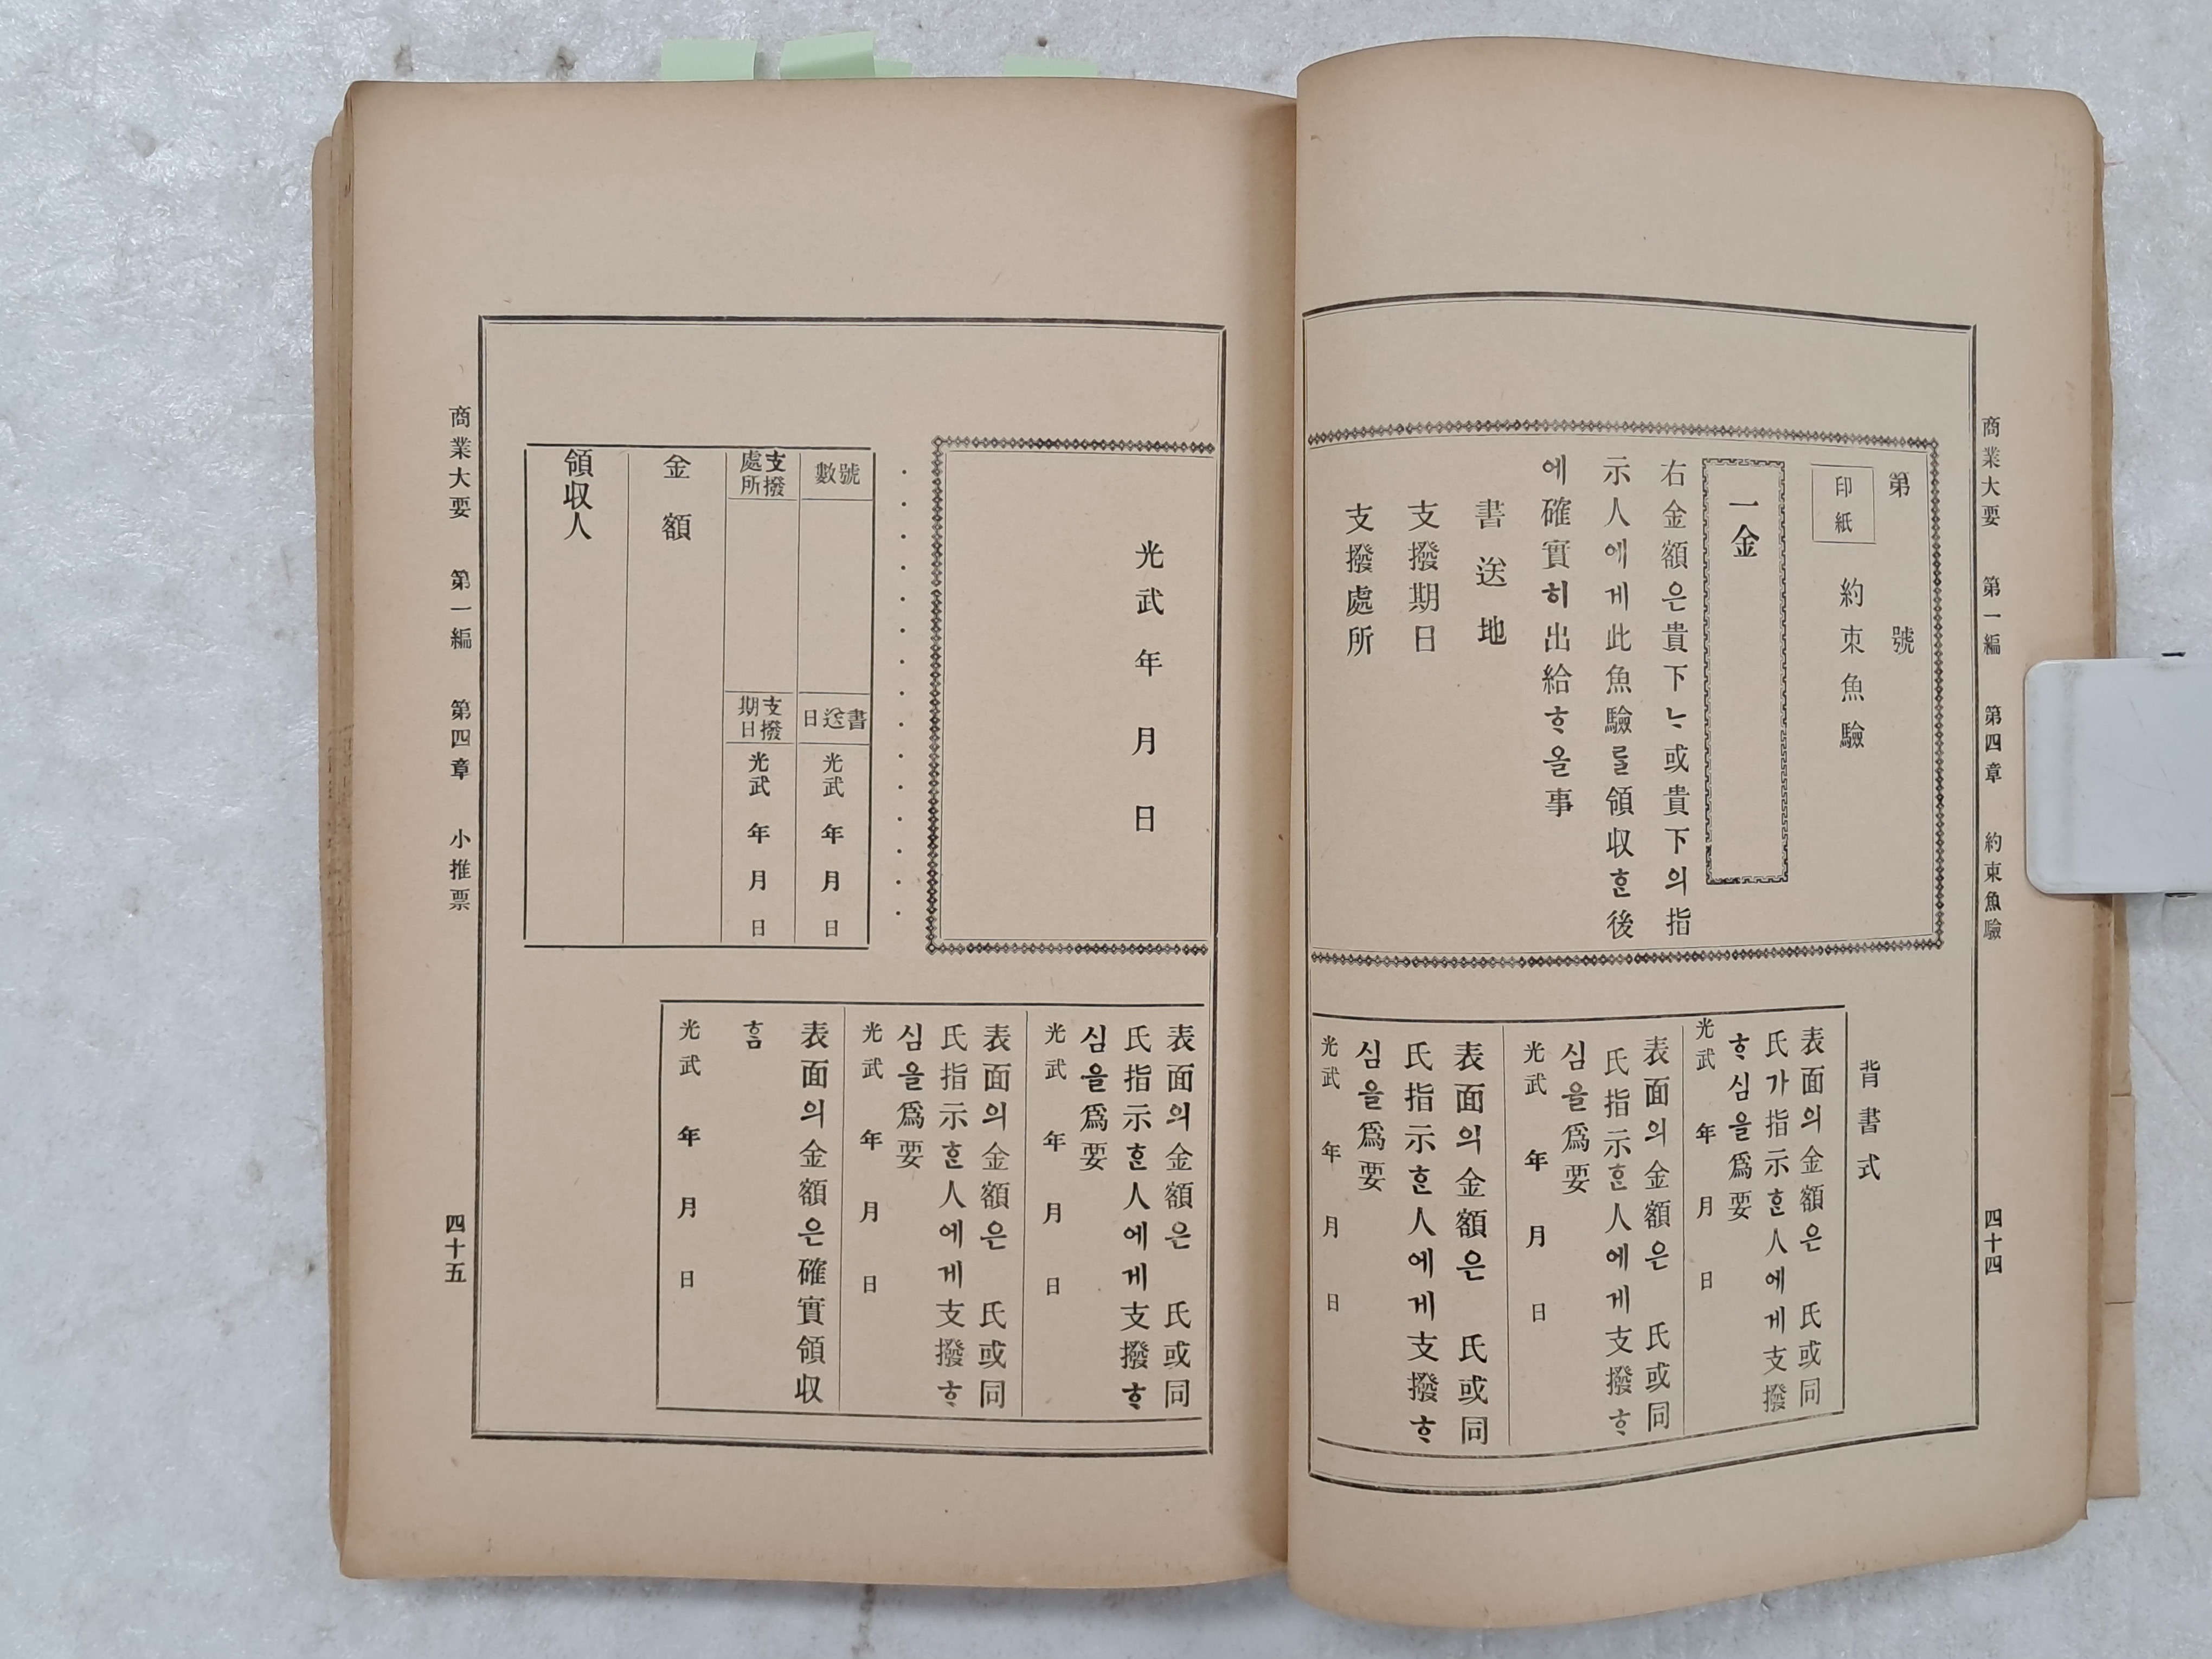 商業大要 第一編 第四章 約束魚驗 四十四
第 號
印紙
約束魚驗
一金
右金額은貴下ᄂᆞ或貴下의指
示人에게此魚驗를領収ᄒᆞᆫ後
에確實히出給ᄒᆞ올事
書送地
支撥期日
支撥處所
背書式
表面의金額은 氏或同
氏가指示ᄒᆞᆫ人에게支撥
ᄒᆞ심을爲要
光武 年 月 日
表面의金額은 氏或同
氏指示ᄒᆞᆫ人에게支撥ᄒᆞ
심을爲要
光武 年 月 日
表面의金額은 氏或同
氏指示ᄒᆞᆫ人에게支撥ᄒᆞ
심을爲要
光武 年 月 日
光武 年 月 日
號數
書送日
光武 年 月 日
支撥處所
支撥期日
光武 年 月 日
金額
領収人
表面의金額은 氏或同
氏指示ᄒᆞᆫ人에게支撥ᄒᆞ
심을爲要
光武 年 月 日
表面의金額은 氏或同
氏指示ᄒᆞᆫ人에게支撥ᄒᆞ
심을爲要
光武 年 月 日
表面의金額은確實領収
ᄒᆞᆷ
光武 年 月 日
商業大要 第一編 第四章 小推票 四十五